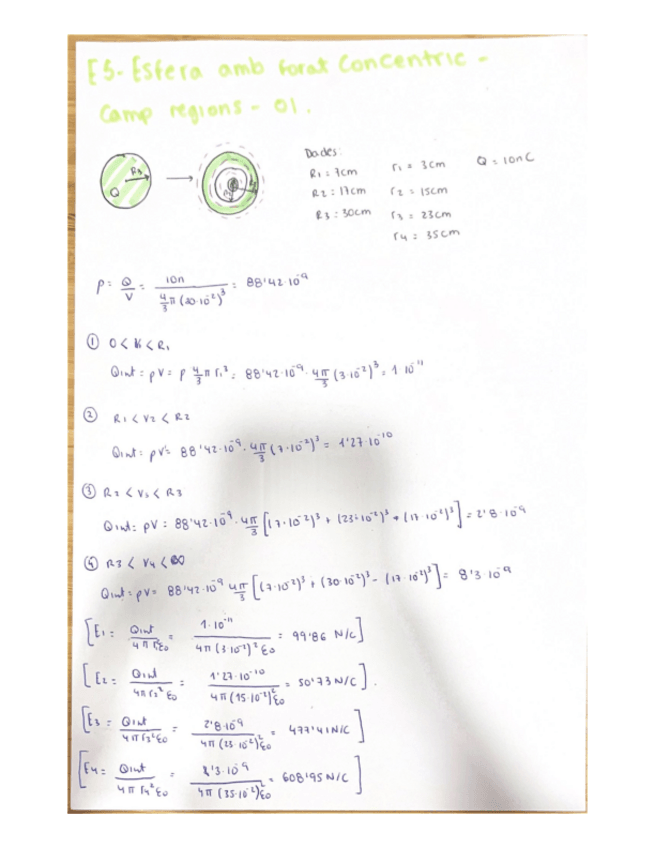 E5- Esfera amb forat Concentric -
Camp regions - 01.
R3
Q
Dades:
R1 = 7cm r1 = 3cm Q = 10nC
R2 = 17cm r2 = 15cm
R3 = 30cm r3 = 23cm
r4 = 35cm
ρ = Q/V = 10n / (4/3 π (30·10^-2)^3) = 88'42·10^-9
① 0 < r1 < R1
Qint = ρV = ρ 4/3 π r1^3 = 88'42·10^-9 · 4π/3 (3·10^-2)^3 = 1·10^-11
② R1 < r2 < R2
Qint = ρV = 88'42·10^-9 · 4π/3 (7·10^-2)^3 = 1'27·10^-10
③ R2 < r3 < R3
Qint = ρV = 88'42·10^-9 · 4π/3 [(7·10^-2)^3 + (23·10^-2)^3 + (17·10^-2)^3] = 2'8·10^-9
④ R3 < r4 < ∞
Qint = ρV = 88'42·10^-9 4π/3 [(7·10^-2)^3 + (30·10^-2)^3 - (17·10^-2)^3] = 8'3·10^-9
[E1 = Qint / (4π r1^2 ε0) = 1·10^-11 / (4π (3·10^-2)^2 ε0) = 99'86 N/C]
[E2 = Qint / (4π r2^2 ε0) = 1'27·10^-10 / (4π (15·10^-2)^2 ε0) = 50'73 N/C].
[E3 = Qint / (4π r3^2 ε0) = 2'8·10^-9 / (4π (23·10^-2)^2 ε0) = 477'41 N/C]
[E4 = Qint / (4π r4^2 ε0) = 8'3·10^-9 / (4π (35·10^-2)^2 ε0) = 608'95 N/C]